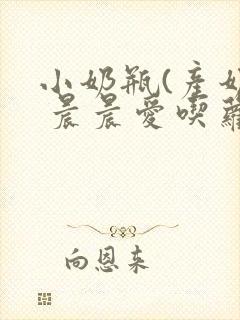 小奶瓶(産奶
晨晨愛喫蘿
向恩来